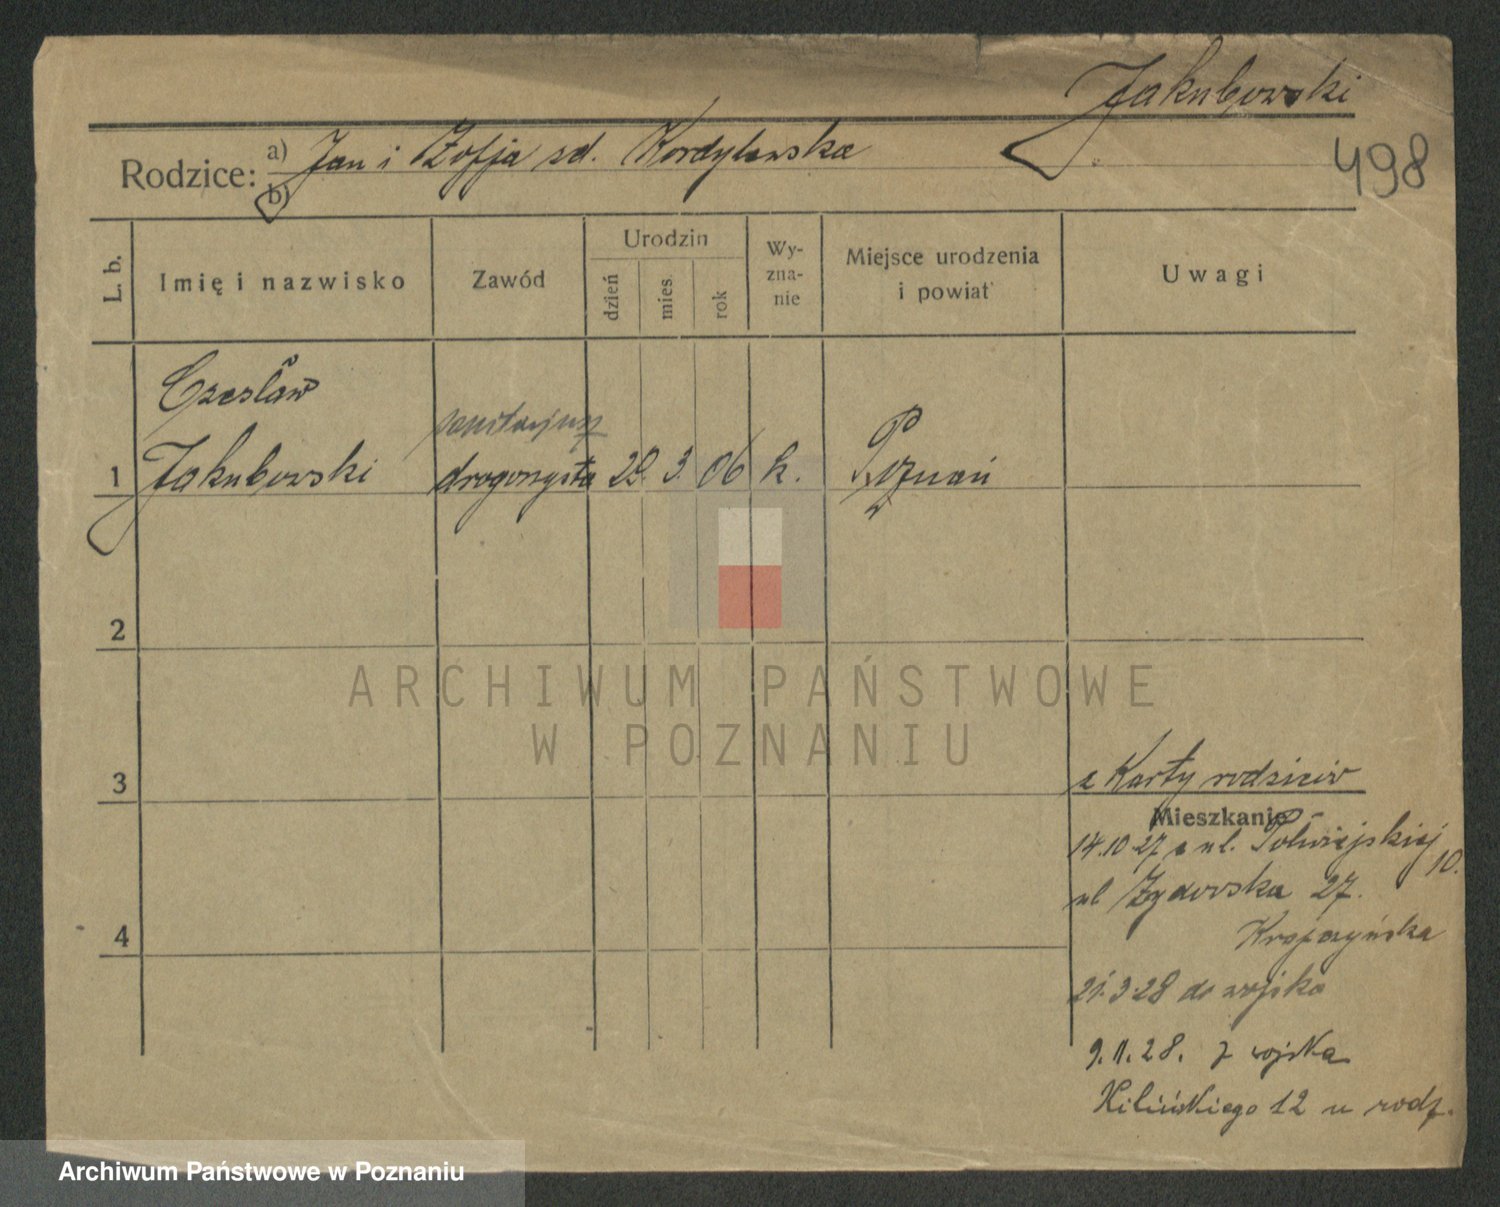 Jakubowski
498
Rodzice: a) Jan i Zofja zd. Kordylewska
b)
L. b.
Imię i nazwisko
Zawód
Urodzin
dzień
mies.
rok
Wy-
zna-
nie
Miejsce urodzenia
i powiat
Uwagi
Czesław
sanitarjusz
1 Jakubowski drogerzysta 29. 3. 06 k. Poznań
2
ARCHIWUM PAŃSTWOWE
W POZNANIU
3
z Karty rodziców
Mieszkanie
14.10.27 z ul. Półwiejskiej 10.
ul Żydowska 27.
4
21.3.28 do wojska
9.11.28. z wojska
Kilińskiego 12 u rodz.
Archiwum Państwowe w Poznaniu